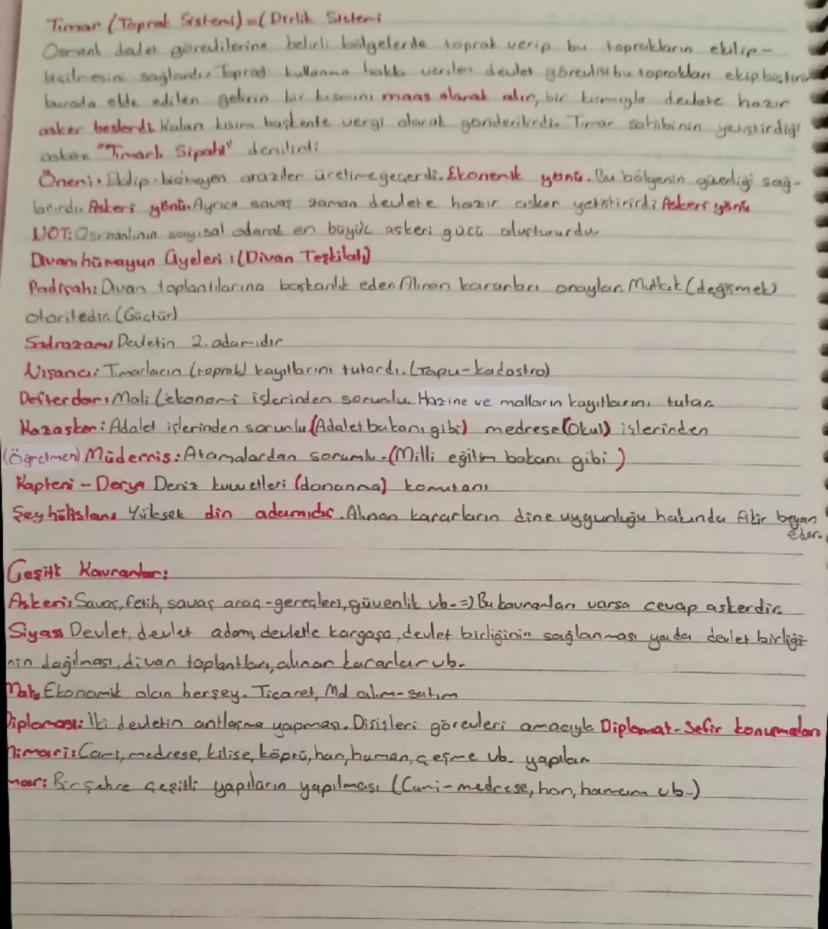 Tımar (Toprak Sistemi) = (Dirlik Sistemi
Osmanlı devlet görevlilerine belirli bölgelerde toprak verip bu toprakların ekilip-
biçilmesini sağlardı. Toprağı kullanma hakkı verilen devlet görevlisi bu toprakları ekip biçtirir
burada elde edilen gelirin bir kısmını maaş olarak alır, bir kısmıyla devlete hazır
asker beslerdi. Kalan kısım başkente vergi olarak gönderilirdi. Tımar sahibinin yetiştirdiği
askere "Tımarlı Sipahi" denilirdi
Önemi: Ekilip-biçilmeyen araziler üretime geçerdi. Ekonomik yönü. Bu bölgenin güvenliği sağ-
lanırdı. Askeri yönü. Ayrıca savaş zaman devlete hazır asker yetiştirirdi Askeri yönü
NOT: Osmanlının sayısal olarak en büyük askeri gücü oluştururdu.
Divanıhümayun Üyeleri: (Divan Teşkilatı)
Padişah: Divan toplantılarına başkanlık eden. Alınan kararları onaylar. Mutlak (değişmek)
otoritedir. (Güçtür)
Sadrazam: Devletin 2. adamıdır
Nişancı: Tımarların (toprak) kayıtlarını tutardı. (Tapu-kadastro)
Defterdar: Mali (ekonomi işlerinden sorumlu. Hazine ve malların kayıtlarını tutar
Kazasker: Adalet işlerinden sorumlu (Adalet bakanı gibi) medrese (Okul) işlerinden
(Öğretmen) Müderris: Atamalardan sorumlu. (Milli eğitim bakanı gibi)
Kapteni-Derya Deniz kuvvetleri (donanma) komutanı
Şeyhülislam Yüksek din adamıdır. Alınan kararların dine uygunluğu hakında fikir beyan
eder.
Çeşitli Kavramlar:
Askeri: Savaş, fetih, savaş araç-gereçleri, güvenlik vb. => Bu kavramları varsa cevap askerdir.
Siyasi Devlet, devlet adamı, devlette kargaşa, devlet birliğinin sağlanması yada devlet birliği-
nin dağılması, divan toplantıları, alınan kararlar vb.
Mali, Ekonomik olan herşey. Ticaret, Mal alım-satım
Diplomasi: İki devletin antlaşma yapması. Dışişleri görevleri amacıyla Diplomat-Sefir konumaları
Mimari: Cami, medrese, kilise, köprü, han, hamam, çeşme vb. yapıları
mar: Bir şehre çeşitli yapıların yapılması (Cami-medrese, han, hamam vb.)